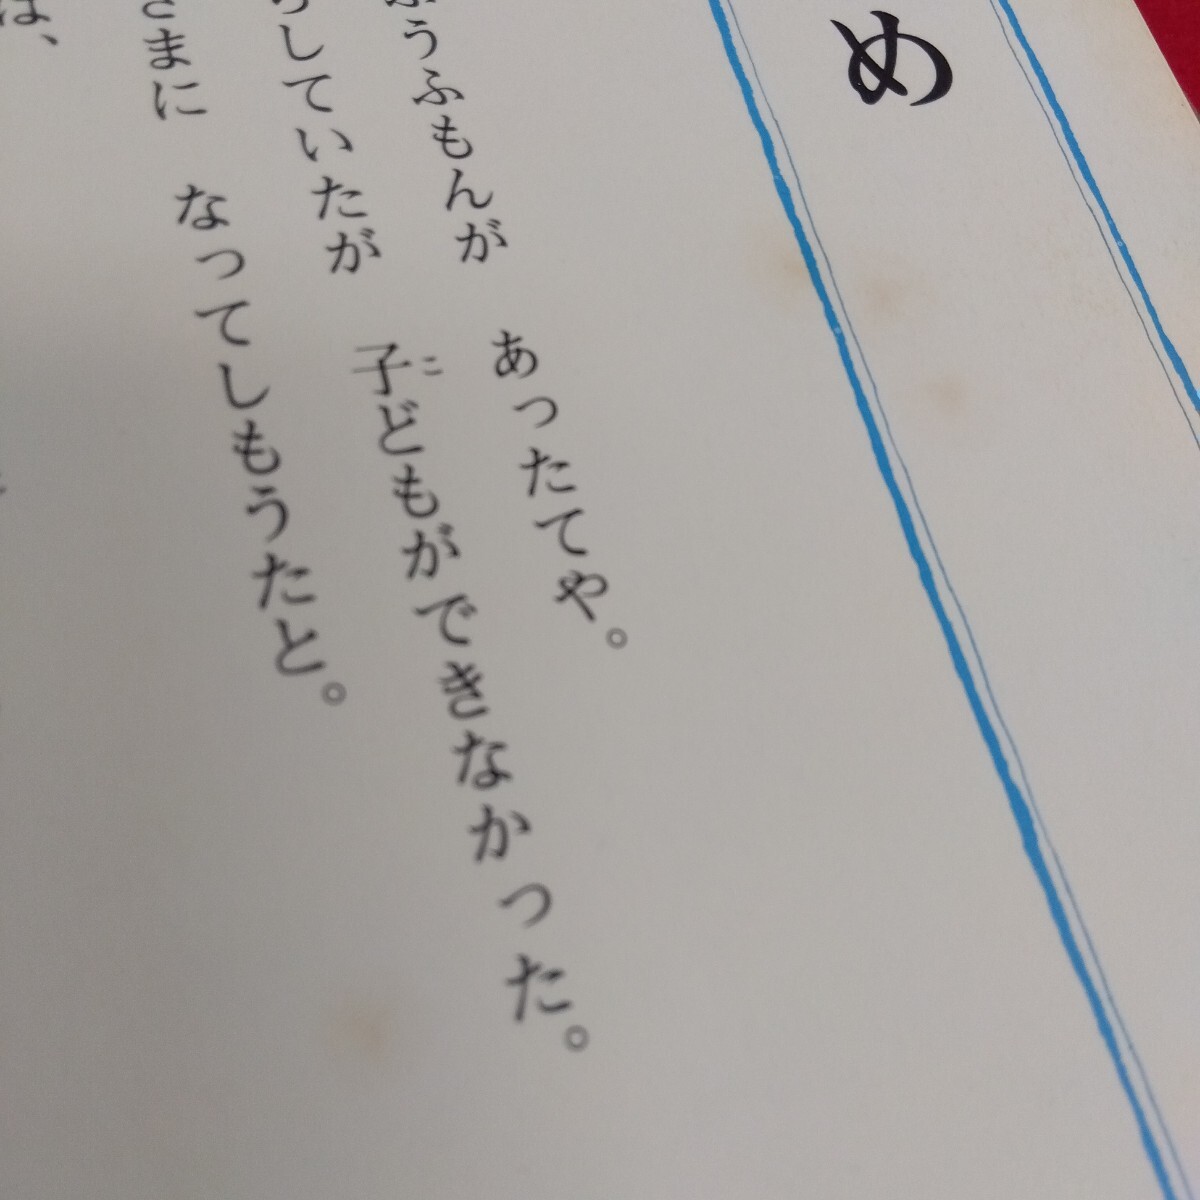 め
うふもんが　あったてや。
していたが　子どもができなかった。
こ
まに　なってしもうたと。
は、